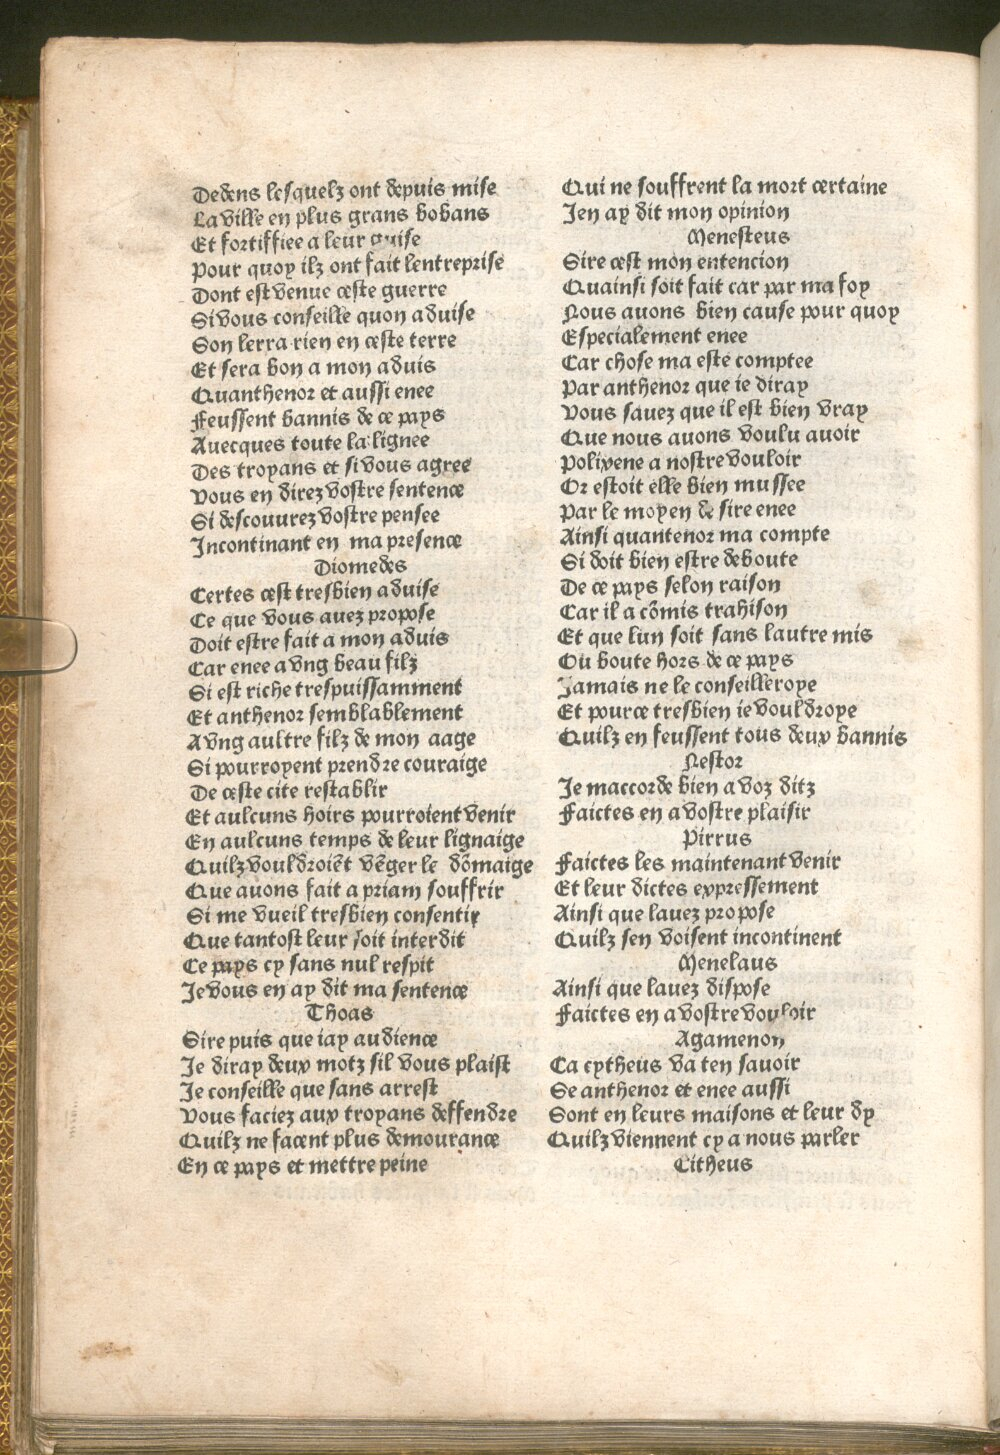 Dedens lesquelz ont depuis mise
La ville en plus grans bobans
Et fortiffiee a leur guise
Pour quoy ilz ont fait lentreprise
Dont est venue ceste guerre
Si vous conseille quon aduise
Son lerra rien en ceste terre
Et sera bon a mon aduis
Quanthenor et aussi enee
Feussent bannis de ce pays
Auecques toute la lignee
Des troyans et si vous agree
Vous en direz vostre sentence
Si descouurez vostre pensee
Incontinant en ma presence
Diomedes
Certes cest tresbien aduise
Ce que vous auez propose
Doit estre fait a mon aduis
Car enee a vng beau filz
Si est riche trespuissamment
Et anthenor semblablement
A vng aultre filz de mon aage
Si pourroyent prendre couraige
De ceste cite restablir
Et aulcuns hoirs pourroient venir
En aulcuns temps de leur lignaige
Quilz vouldroiēt vēger le dōmaige
Que auons fait a priam souffrir
Si me vueil tresbien consentir
Que tantost leur soit interdit
Ce pays cy sans nul respit
Je vous en ay dit ma sentence
Thoas
Sire puis que iay audience
Je diray deux motz sil vous plaist
Je conseille que sans arrest
Vous faciez aux troyans deffendre
Quilz ne facent plus demourance
En ce pays et mettre peine
Qui ne souffrent la mort certaine
Jen ay dit mon opinion
Menesteus
Sire cest mon entencion
Quainsi soit fait car par ma foy
Nous auons bien cause pour quoy
Especialement enee
Car chose ma este comptee
Par anthenor que ie diray
Vous sauez que il est bien vray
Que nous auons voulu auoir
Polixene a nostre vouloir
Or estoit elle bien mussee
Par le moyen de sire enee
Ainsi quantenor ma compte
Si doit bien estre deboute
De ce pays selon raison
Car il a cōmis trahison
Et que lun soit sans lautre mis
Ou boute hors de ce pays
Jamais ne le conseilleroye
Et pource tresbien ie vouldroye
Quilz en feussent tous deux bannis
Nestor
Je maccorde bien a voz ditz
Faictes en a vostre plaisir
Pirrus
Faictes les maintenant venir
Et leur dictes expressement
Ainsi que lauez propose
Quilz sen voisent incontinent
Menelaus
Ainsi que lauez dispose
Faictes en a vostre vouloir
Agamenon
Ca cytheus va ten sauoir
Se anthenor et enee aussi
Sont en leurs maisons et leur dy
Quilz viennent cy a nous parler
Citheus